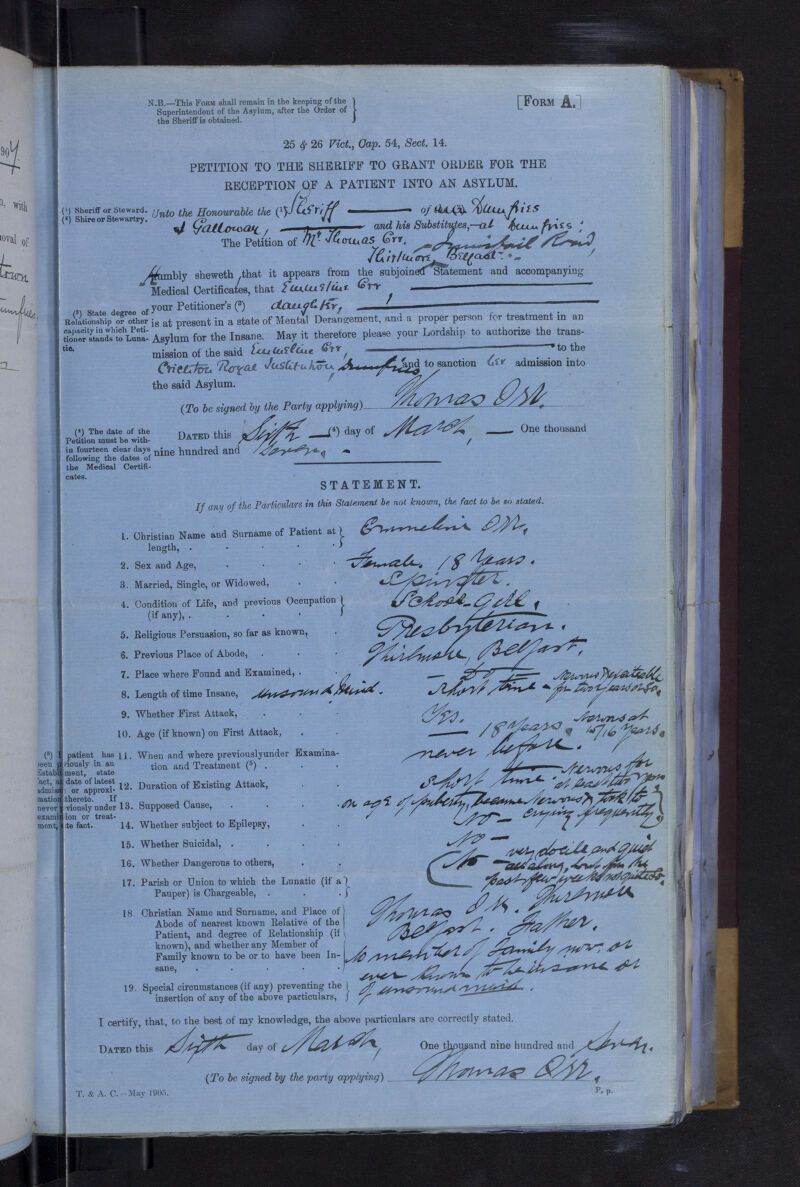 904
with
oval of
town
N.B.—This Form shall remain in the keeping of the
Superintendent of the Asylum, after the Order of
the Sheriff is obtained.
[Form A.]
25 & 26 Vict., Cap. 54, Sect. 14.
PETITION TO THE SHERIFF TO GRANT ORDER FOR THE
RECEPTION OF A PATIENT INTO AN ASYLUM.
(¹) Sheriff or Steward.
(²) Shire or Stewartry.
Unto the Honourable the (¹) Sheriff of Dumfries
& Galloway, and his Substitutes,—at Dumfries;
The Petition of Mr. Thomas Orr, Road,
Thirlmere, Belfast.
Humbly sheweth, that it appears from the subjoined Statement and accompanying
Medical Certificates, that Emmeline Orr
(³) State degree of
Relationship or other
capacity in which Peti-
tioner stands to Luna-
tic.
your Petitioner's (³) daughter,
is at present in a state of Mental Derangement, and a proper person for treatment in an
Asylum for the Insane. May it therefore please your Lordship to authorize the trans-
mission of the said Emmeline Orr, to the
Crichton Royal Institution, Dumfries and to sanction her admission into
the said Asylum.
(To be signed by the Party applying) Thomas Orr.
(⁴) The date of the
Petition must be with-
in fourteen clear days
following the dates of
the Medical Certifi-
cates.
Dated this Sixth (⁴) day of March, One thousand
nine hundred and Seven.
STATEMENT.
If any of the Particulars in this Statement be not known, the fact to be so stated.
1. Christian Name and Surname of Patient at
length, Emmeline Orr.
2. Sex and Age, Female. 18 Years.
3. Married, Single, or Widowed, Spinster.
4. Condition of Life, and previous Occupation
(if any), School-Girl.
5. Religious Persuasion, so far as known, Presbyterian.
6. Previous Place of Abode, Thirlmere, Belfast.
7. Place where Found and Examined, do
8. Length of time Insane, unsound mind. Short time - Nervous & excitable
for two years or so.
9. Whether First Attack, Yes.
10. Age (if known) on First Attack, 18 Years. Nervous at
15/16 Years.
(⁵) If patient has
been previously in an
Establishment, state
fact, and date of latest
admission or approxi-
mation thereto. If
never previously under
examination or treat-
ment, state fact.
11. When and where previously under Examina-
tion and Treatment (⁵) never before.
12. Duration of Existing Attack, Short time. Nervous for
at least two years
13. Supposed Cause, on age of puberty, became nervous & took to
crying frequently
14. Whether subject to Epilepsy, No —
15. Whether Suicidal, No —
16. Whether Dangerous to others, No — very docile and quiet
all along, but for the
past few weeks not quite so.
17. Parish or Union to which the Lunatic (if a
Pauper) is Chargeable,
18 Christian Name and Surname, and Place of
Abode of nearest known Relative of the
Patient, and degree of Relationship (if
known), and whether any Member of
Family known to be or to have been In-
sane,
Thomas Orr. Thirlmere
Belfast. Father.
No member of family now, or
ever known to be insane or
of unsound mind.
19. Special circumstances (if any) preventing the
insertion of any of the above particulars,
I certify, that, to the best of my knowledge, the above particulars are correctly stated.
Dated this Sixth day of March, One thousand nine hundred and Seven.
(To be signed by the party applying) Thomas Orr.
T. & A. C.—May 1905.
P. p.